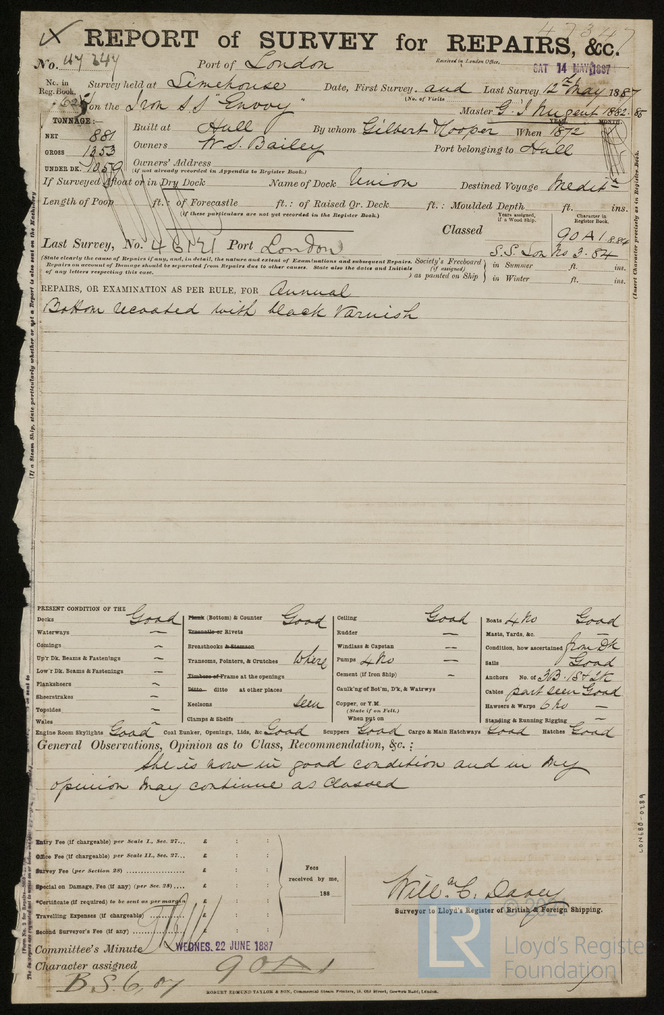 47347
REPORT of SURVEY for REPAIRS, &c.
No. 47347 Port of London Received in London Office, SAT 14 MAY 1887
No. in Reg. Book. Survey held at Limehouse Date, First Survey, and Last Survey, 12th May 1887
(No. of Visits )
on the Iron SS "Envoy" Master G. J. Nugent 1882-85
TONNAGE:- YEAR. MONTH.
NET 881 Built at Hull By whom Gilbert & Cooper When 1872
GROSS 1353 Owners W. S. Bailey Port belonging to Hull
UNDER DK. 1059 Owners' Address
(if not already recorded in Appendix to Register Book.)
If Surveyed Afloat or in Dry Dock Name of Dock Union Destined Voyage Medit
Length of Poop ft.: of Forecastle ft.: of Raised Qr. Deck ft.: Moulded Depth ft. ins.
(if these particulars are not yet recorded in the Register Book.)
Years assigned, if a Wood Ship. Character in Register Book.
Last Survey, No. Port London Classed 90A1
S.S. Lon No 3-84
(State clearly the cause of Repairs if any, and, in detail, the nature and extent of Examinations and subsequent Repairs.
Repairs on account of Damage should be separated from Repairs due to other causes. State also the dates and Initials
of any letters respecting this case.
Society's Freeboard (if assigned) as painted on Ship in Summer ft. ins.
in Winter ft. ins.
REPAIRS, OR EXAMINATION AS PER RULE, FOR Annual
Bottom recoated with black varnish
PRESENT CONDITION OF THE
Decks Good
Waterways
Comings
Up'r Dk. Beams & Fastenings
Low'r Dk. Beams & Fastenings
Planksheers
Sheerstrakes
Topsides
Wales
Plank (Bottom) & Counter Good
Treenails or Rivets
Breasthooks & Stemson
Transoms, Pointers, & Crutches Where
Timbers or Frame at the openings
Ditto ditto at other places
Keelsons seen
Clamps & Shelfs
Ceiling Good
Rudder
Windlass & Capstan
Pumps 4 No
Cement (if Iron Ship)
Caulk'g of Bot'm, D'k, & Watrwys
Copper, or Y.M.
(State if on Felt.)
When put on
Boats 4 No Good
Masts, Yards, &c.
Condition, how ascertained from Dk
Sails Good
Anchors No. of 3B. 1S. 2K
Cables part seen Good
Hawsers & Warps 6 No
Standing & Running Rigging
Engine Room Skylights Good Coal Bunker, Openings, Lids, &c. Good Scuppers Good Cargo & Main Hatchways Good Hatches Good
General Observations, Opinion as to Class, Recommendation, &c.:
She is now in good condition and in my
opinion may continue as Classed
Entry Fee (if chargeable) per Scale I., Sec. 27... £ : :
Office Fee (if chargeable) per Scale II., Sec. 27... £ : :
Survey Fee (per Section 28) £ : :
Special on Damage, Fee (if any) (per Sec. 28)... £ : :
*Certificate (if required) to be sent as per margin £ : :
Travelling Expenses (if chargeable) £ : :
Second Surveyor's Fee (if any) £ : :
Fees received by me, 188
Will'm C. Davey
Surveyor to Lloyd's Register of British & Foreign Shipping.
Committee's Minute WEDNES. 22 JUNE 1887
Character assigned 90A1
B.S. 6, 87
ROBERT EDMUND TAYLOR & SON, Commercial Steam Printers, 19, Old Street, Goswell Road, London.
LR
Lloyd's Register
Foundation